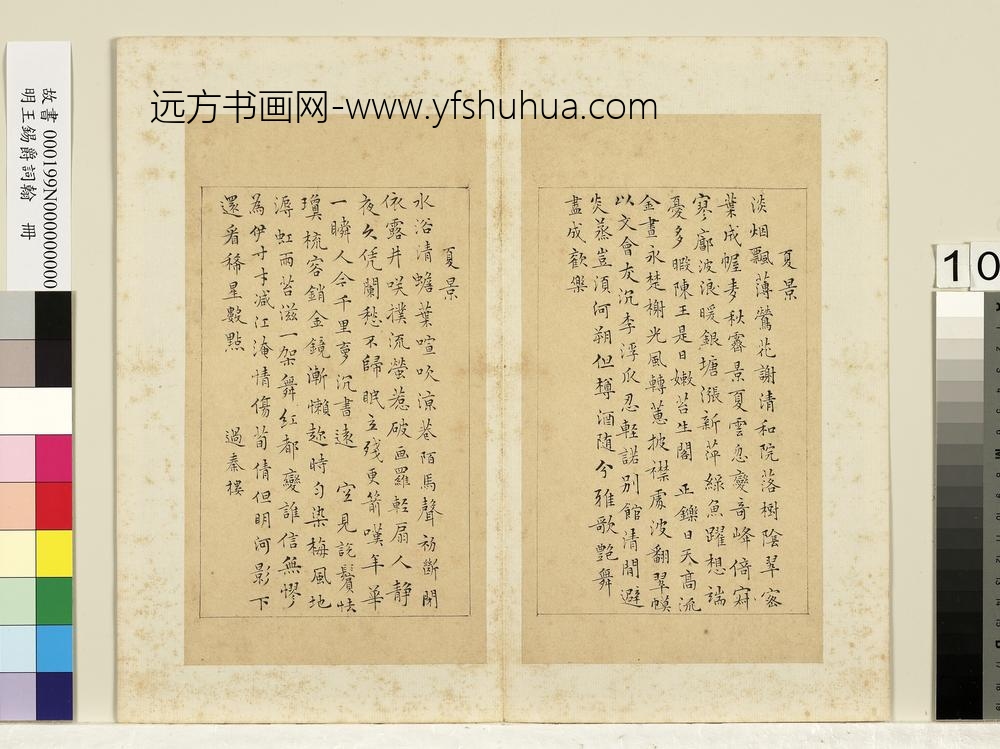 远方书画网-www.yfshuhua.com
故書 000199N000000000
明王錫爵詞翰 冊
10
夏景
淡烟飄薄鶯花謝清和院落樹陰翠密
葉成幄麥秋霽景夏雲忽變奇峰倚寂
寥廓波浪暖銀塘漲新萍綠魚躍想端
憂多暇陳王是日嫩苔生閣 正鑠日天高流
金晝永楚榭光風轉蕙披襟處波翻翠幙
以文會友沉李浮瓜忍輕諾別館清閒避
炎蒸豈須何朔但樽酒随兮雅歌艶舞
盡成歡樂
夏景
水浴清蟾葉喧吹涼巷陌馬聲初斷閒
依露井咲撲流螢惹破画羅輕扇人静
夜久凭闌愁不歸眠立殘更箭嘆年華
一瞬人今千里夢沉書遠 空見說鬢怯
瓊梳容銷金鏡漸懶趂時匀染梅風地
溽虹雨苔滋一架舞紅都變誰信無憀
為伊才减江淹情傷荀倩但明河影下
還看稀星數㸃 過秦樓